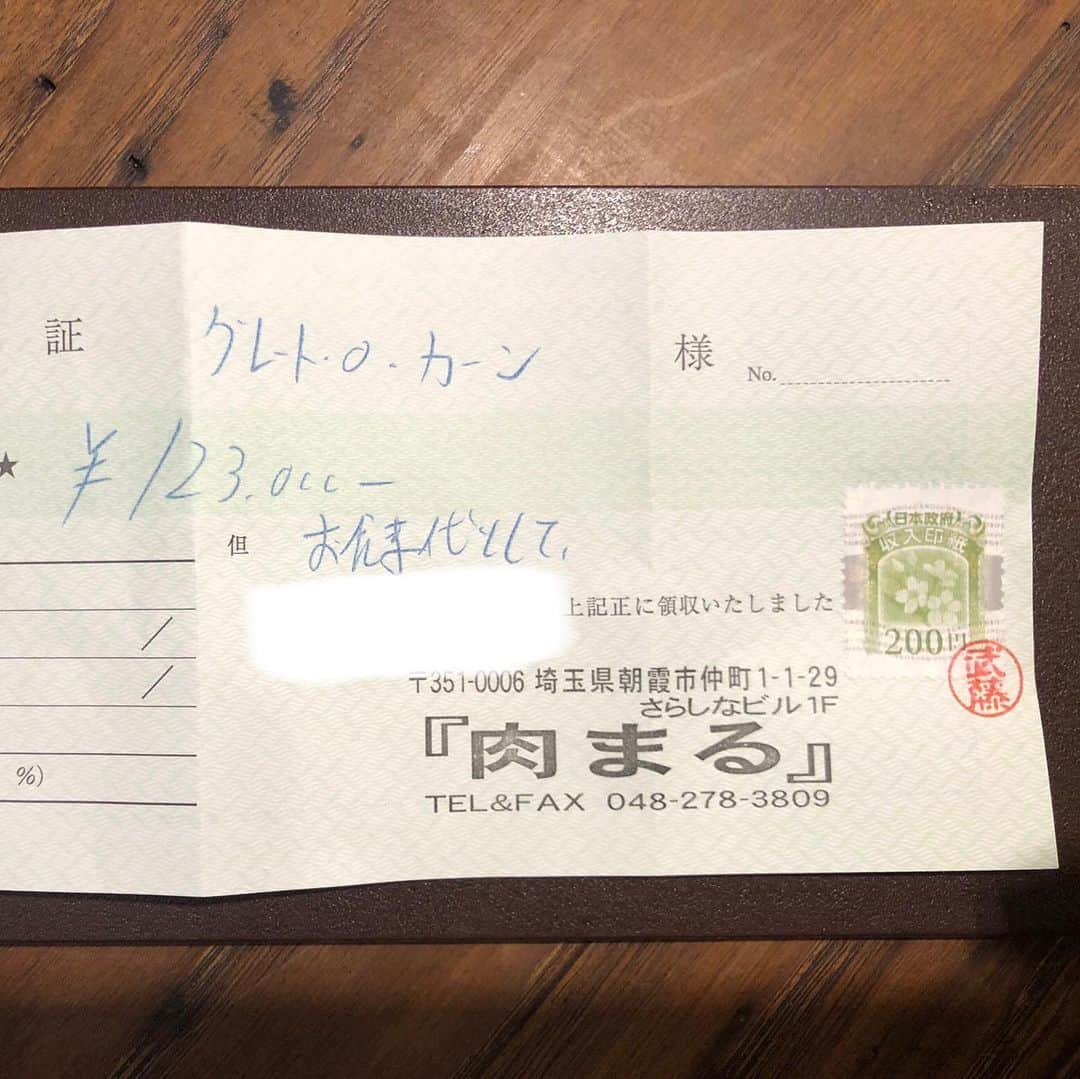 証
グレート・O・カーン 様
No.
★ ¥123.000-
但 お食事代として、
上記正に領収いたしました
日本政府
収入印紙
200円
武藤
〒351-0006 埼玉県朝霞市仲町1-1-29
さらしなビル1F
『肉まる』
TEL&FAX 048-278-3809
%)